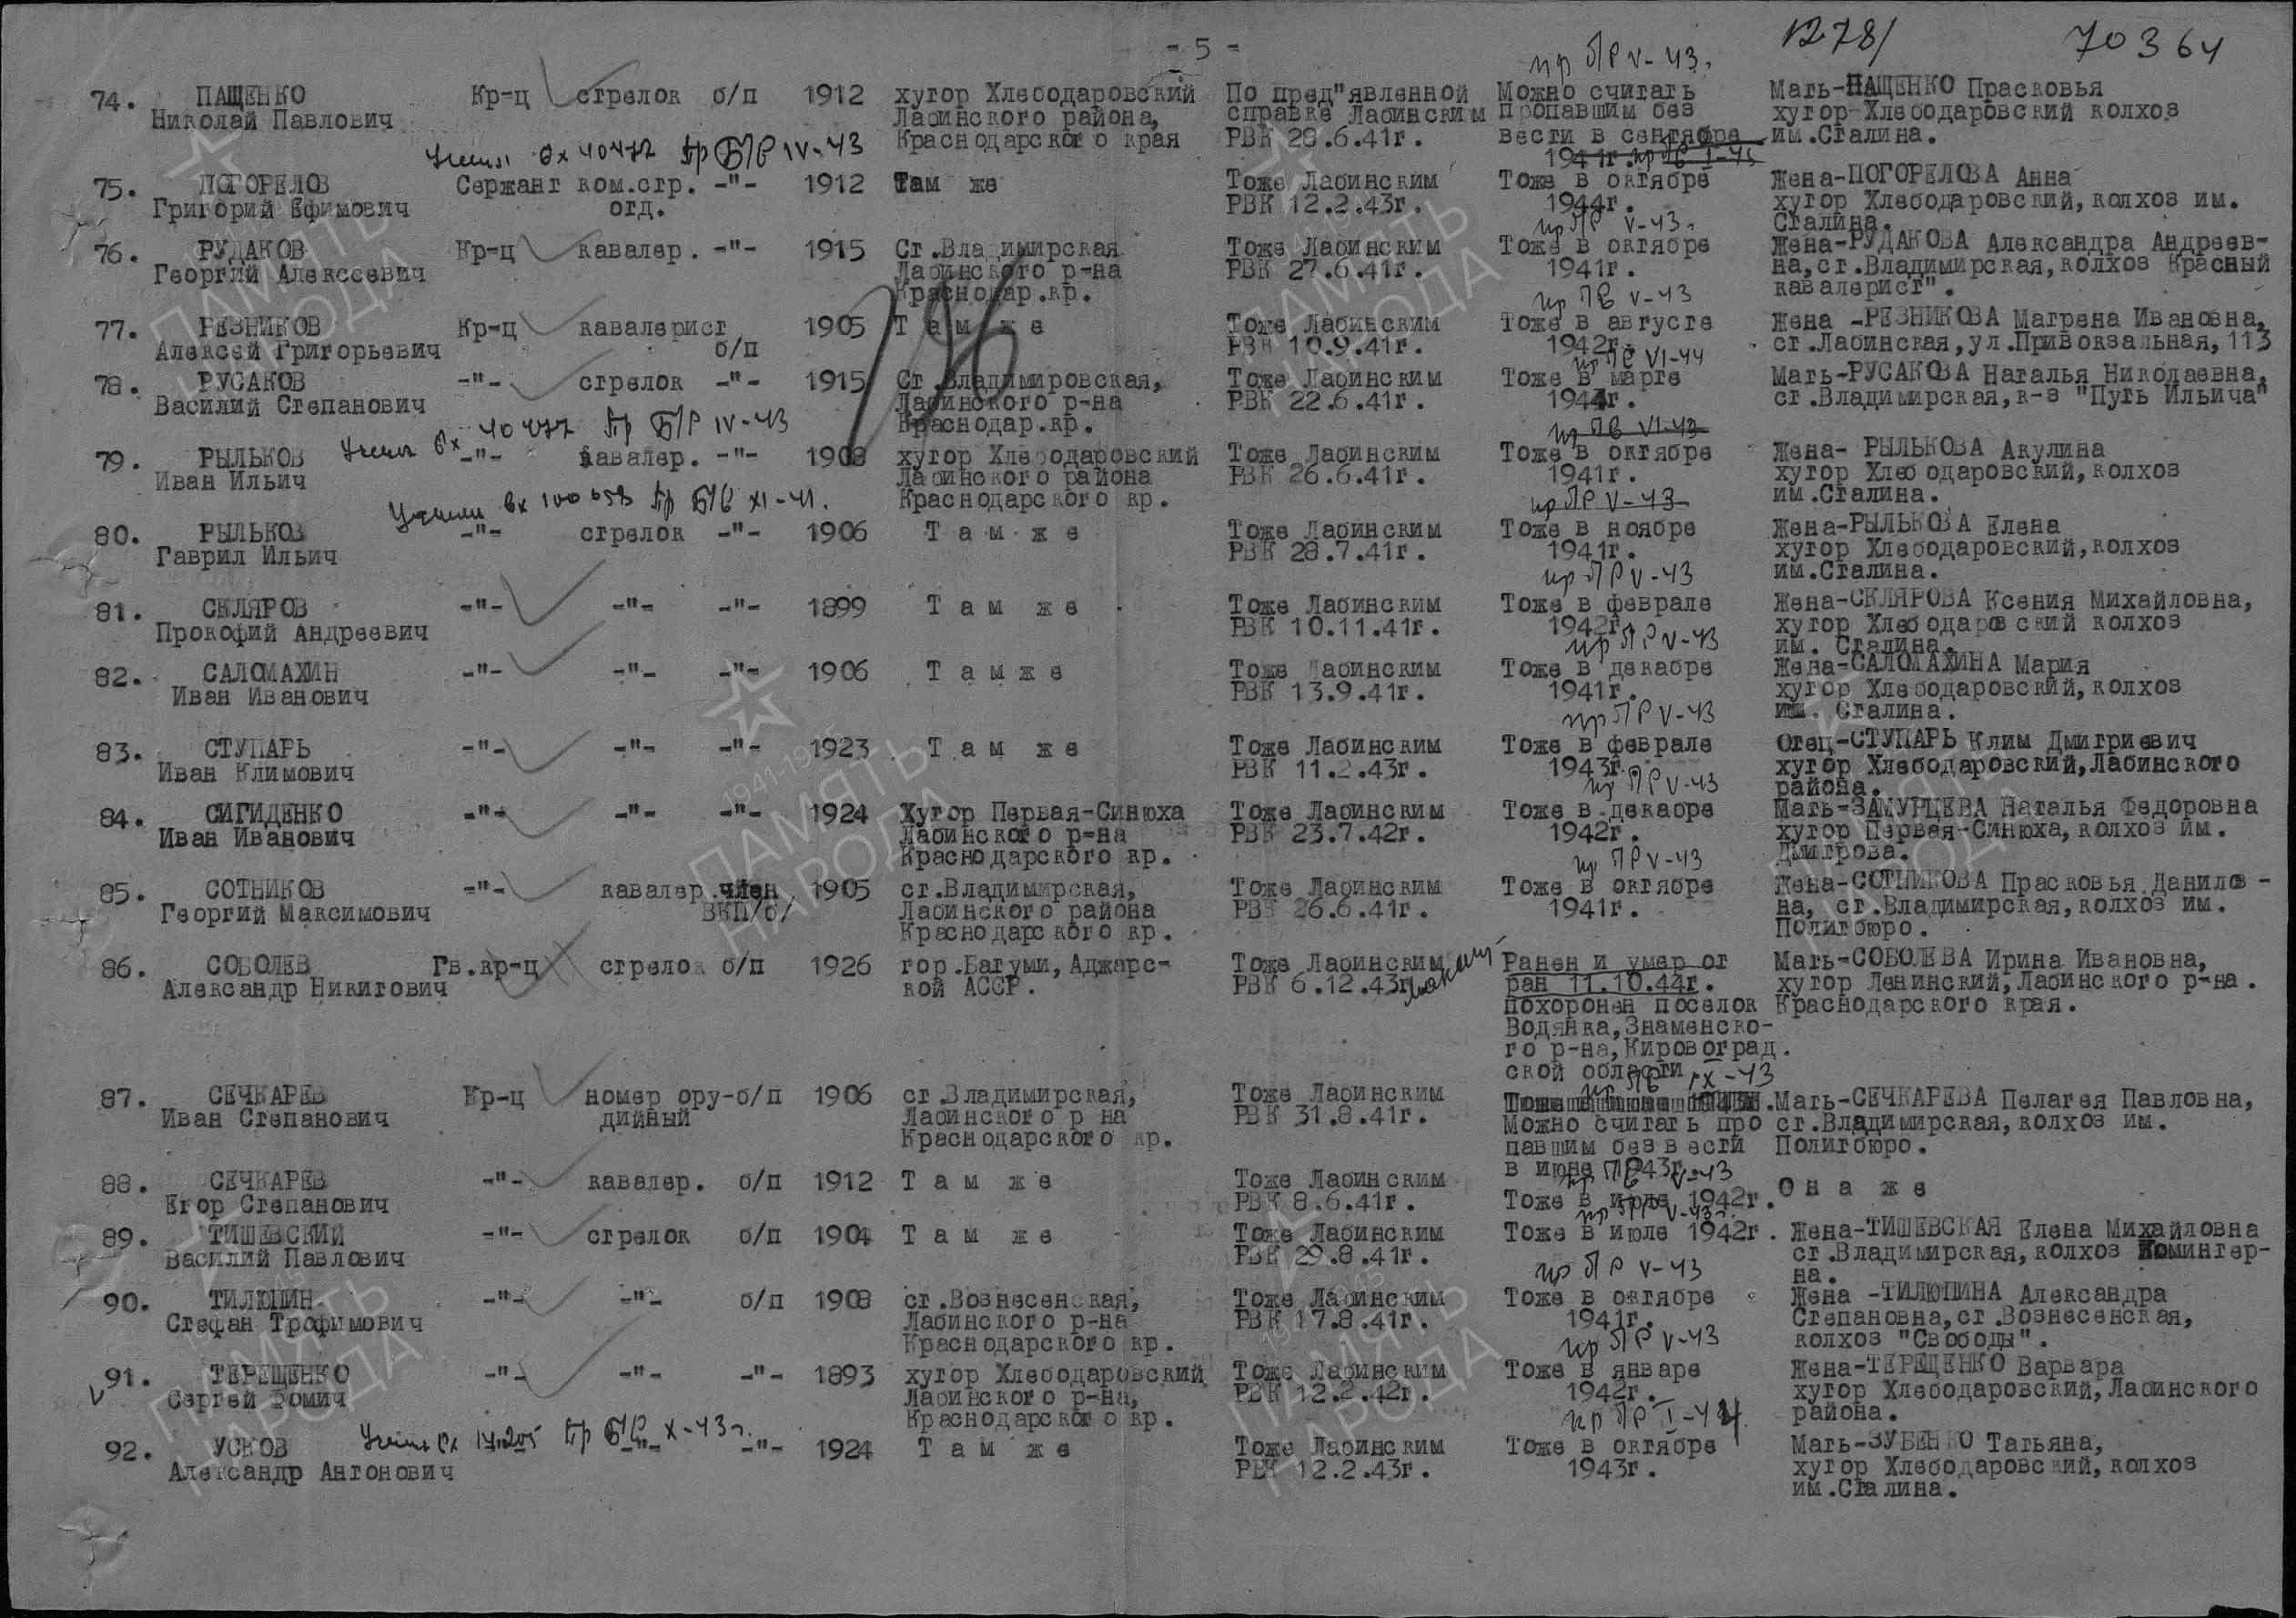 - 5 -
1278/ 70364
пр ПР V-43.
74. ПАЩЕНКО Кр-ц стрелок б/п 1912 хутор Хлебодаровский По пред"явленной Можно считать Мать-ПАЩЕНКО Прасковья
Николай Павлович Лабинского района, справке Лабинским пропавшим без хутор Хлебодаровский колхоз
Краснодарского края РВК 28.6.41г. вести в сентябре им.Сталина.
вх 40477 пр Б/Р IV-43 1941г.
75. ПОГОРЕЛОВ Сержант ком.стр. -"- 1912 Там же Тоже Лабинским Тоже в октябре Жена-ПОГОРЕЛОВА Анна
Григорий Ефимович отд. РВК 12.2.43г. 1944г. хутор Хлебодаровский, колхоз им.
пр ПР V-43. Сталина.
76. РУДАКОВ Кр-ц кавалер. -"- 1915 Ст.Владимирская Тоже Лабинским Тоже в октябре Жена-РУДАКОВА Александра Андреев-
Георгий Алексеевич Лабинского р-на РВК 27.6.41г. 1941г. на,ст.Владимирская,колхоз Красный
Краснодар.кр. пр ПР V-43 кавалерист".
77. РЕЗНИКОВ Кр-ц кавалерист 1905 Там же Тоже Лабинским Тоже в августе Жена -РЕЗНИКОВА Матрена Ивановна,
Алексей Григорьевич б/п РВК 10.9.41г. 1942г. ст.Лабинская,ул.Привокзальная,113
пр ПР VI-44
78. РУСАКОВ -"- стрелок -"- 1915 Ст.Владимировская, Тоже Лабинским Тоже в марте Мать-РУСАКОВА Наталья Николаевна,
Василий Степанович Лабинского р-на РВК 22.6.41г. 1944г. ст.Владимирская,к-з "Путь Ильича"
вх 40477 пр Б/Р IV-43 Краснодар.кр. пр ПР VI-43
79. РЫЛЬКОВ -"- кавалер. -"- 1908 хутор Хлебодаровский Тоже Лабинским Тоже в октябре Жена- РЫЛЬКОВА Акулина
Иван Ильич Лабинского района РВК 26.6.41г. 1941г. хутор Хлебодаровский,колхоз
вх 100658 пр Б/Р XI-41. Краснодарского кр. пр ПР V-43 им.Сталина.
80. РЫЛЬКОВ -"- стрелок -"- 1906 Там же Тоже Лабинским Тоже в ноябре Жена-РЫЛЬКОВА Елена
Гаврил Ильич РВК 28.7.41г. 1941г. хутор Хлебодаровский,колхоз
пр ПР V-43 им.Сталина.
81. СКЛЯРОВ -"- -"- -"- 1899 Там же Тоже Лабинским Тоже в феврале Жена-СКЛЯРОВА Ксения Михайловна,
Прокофий Андреевич РВК 10.11.41г. 1942г. хутор Хлебодаровский колхоз
пр ПР V-43 им. Сталина.
82. САЛОМАХИН -"- -"- -"- 1906 Там же Тоже Лабинским Тоже в декабре Жена-САЛОМАХИНА Мария
Иван Иванович РВК 13.9.41г. 1941г. хутор Хлебодаровский,колхоз
пр ПР V-43 им. Сталина.
83. СТУПАРЬ -"- -"- -"- 1923 Там же Тоже Лабинским Тоже в феврале Отец-СТУПАРЬ Клим Дмитриевич
Иван Климович РВК 11.2.43г. 1943г. хутор Хлебодаровский,Лабинского
пр ПР V-43 района.
84. СИГИДЕНКО -"- -"- -"- 1924 Хутор Первая-Синюха Тоже Лабинским Тоже в декабре Мать-ЗАМУРЦЕВА Наталья Федоровна
Иван Иванович Лабинского р-на РВК 23.7.42г. 1942г. хутор Первая-Синюха, колхоз им.
Краснодарского кр. пр ПР V-43 Дмитрова.
85. СОТНИКОВ -"- кавалер.член 1905 ст.Владимирская, Тоже Лабинским Тоже в октябре Жена-СОТНИКОВА Прасковья Данилов-
Георгий Максимович ВКП/б/ Лабинского района РВК 26.6.41г. 1941г. на, ст.Владимирская,колхоз им.
Краснодарского кр. Политбюро.
86. СОБОЛЕВ Гв.кр-ц стрелок б/п 1926 гор.Батуми, Аджарс- Тоже Лабинским Ранен и умер от Мать-СОБОЛЕВА Ирина Ивановна,
Александр Никитович кой АССР. РВК 6.12.43г. ран 11.10.44г. хутор Ленинский,Лабинского р-на.
похоронен поселок Краснодарского края.
Водянка,Знаменско-
го р-на,Кировоград.
ской области
пр ПР IX-43
87. СЕЧКАРЕВ Кр-ц номер ору-б/п 1906 ст.Владимирская, Тоже Лабинским Мать-СЕЧКАРЕВА Пелагея Павловна,
Иван Степанович дийный Лабинского р на РВК 31.8.41г. Можно считать про ст.Владимирская,колхоз им.
Краснодарского кр. павшим без вести Политбюро.
в июне 1943г.
пр ПР V-43
88. СЕЧКАРЕВ -"- кавалер. б/п 1912 Там же Тоже Лабинским Она же
Егор Степанович РВК 8.6.41г. Тоже в июле 1942г.
пр ПР V-43г.
89. ТИШЕВСКИЙ -"- стрелок б/п 1904 Там же Тоже Лабинским Тоже в июле 1942г. Жена-ТИШЕВСКАЯ Елена Михайловна
Василий Павлович РВК 29.8.41г. ст.Владимирская,колхоз Коминтер-
пр ПР V-43 на.
90. ТИЛЮПИН -"- -"- б/п 1908 ст.Вознесенская, Тоже Лабинским Тоже в октябре Жена -ТИЛЮПИНА Александра
Стефан Трофимович Лабинского р-на РВК 17.8.41г. 1941г. Степановна,ст.Вознесенская,
Краснодарского кр. пр ПР V-43 колхоз "Свободы".
91. ТЕРЕЩЕНКО -"- -"- -"- 1893 хутор Хлебодаровский Тоже Лабинским Тоже в январе Жена-ТЕРЕЩЕНКО Варвара
Сергей Фомич Лабинского р-на, РВК 12.2.42г. 1942г. хутор Хлебодаровский,Лабинского
Краснодарского кр. пр ПР I-44. района.
пр Б/Р X-43г.
92. УСКОВ -"- -"- 1924 Там же Тоже Лабинским Тоже в октябре Мать-ЗУБЕНКО Татьяна,
Александр Антонович РВК 12.2.43г. 1943г. хутор Хлебодаровский, колхоз
им.Сталина.
1941-1945
ПАМЯТЬ
НАРОДА